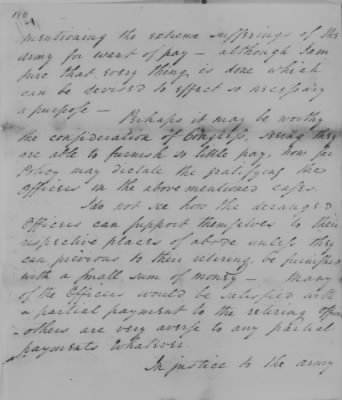 mentioning the extreme sufferings of the
army for want of pay – although I am
sure that every thing is done which
can be devised to effect so necessary
a purpose –
Perhaps it may be worthy
the consideration of Congress, seeing they
are able to furnish so little pay, how far
Policy may dictate the gratifying the
Officers in the above mentioned cases.
I do not see how the deranged
Officers can support themselves to their
respective places of abode unless they
can previous to their retiring be furnished
with a small sum of money – Many
of the Officers would be satisfied with
a partial payment to the retiring Officers
others are very averse to any partial
payments whatever.
In justice to the army